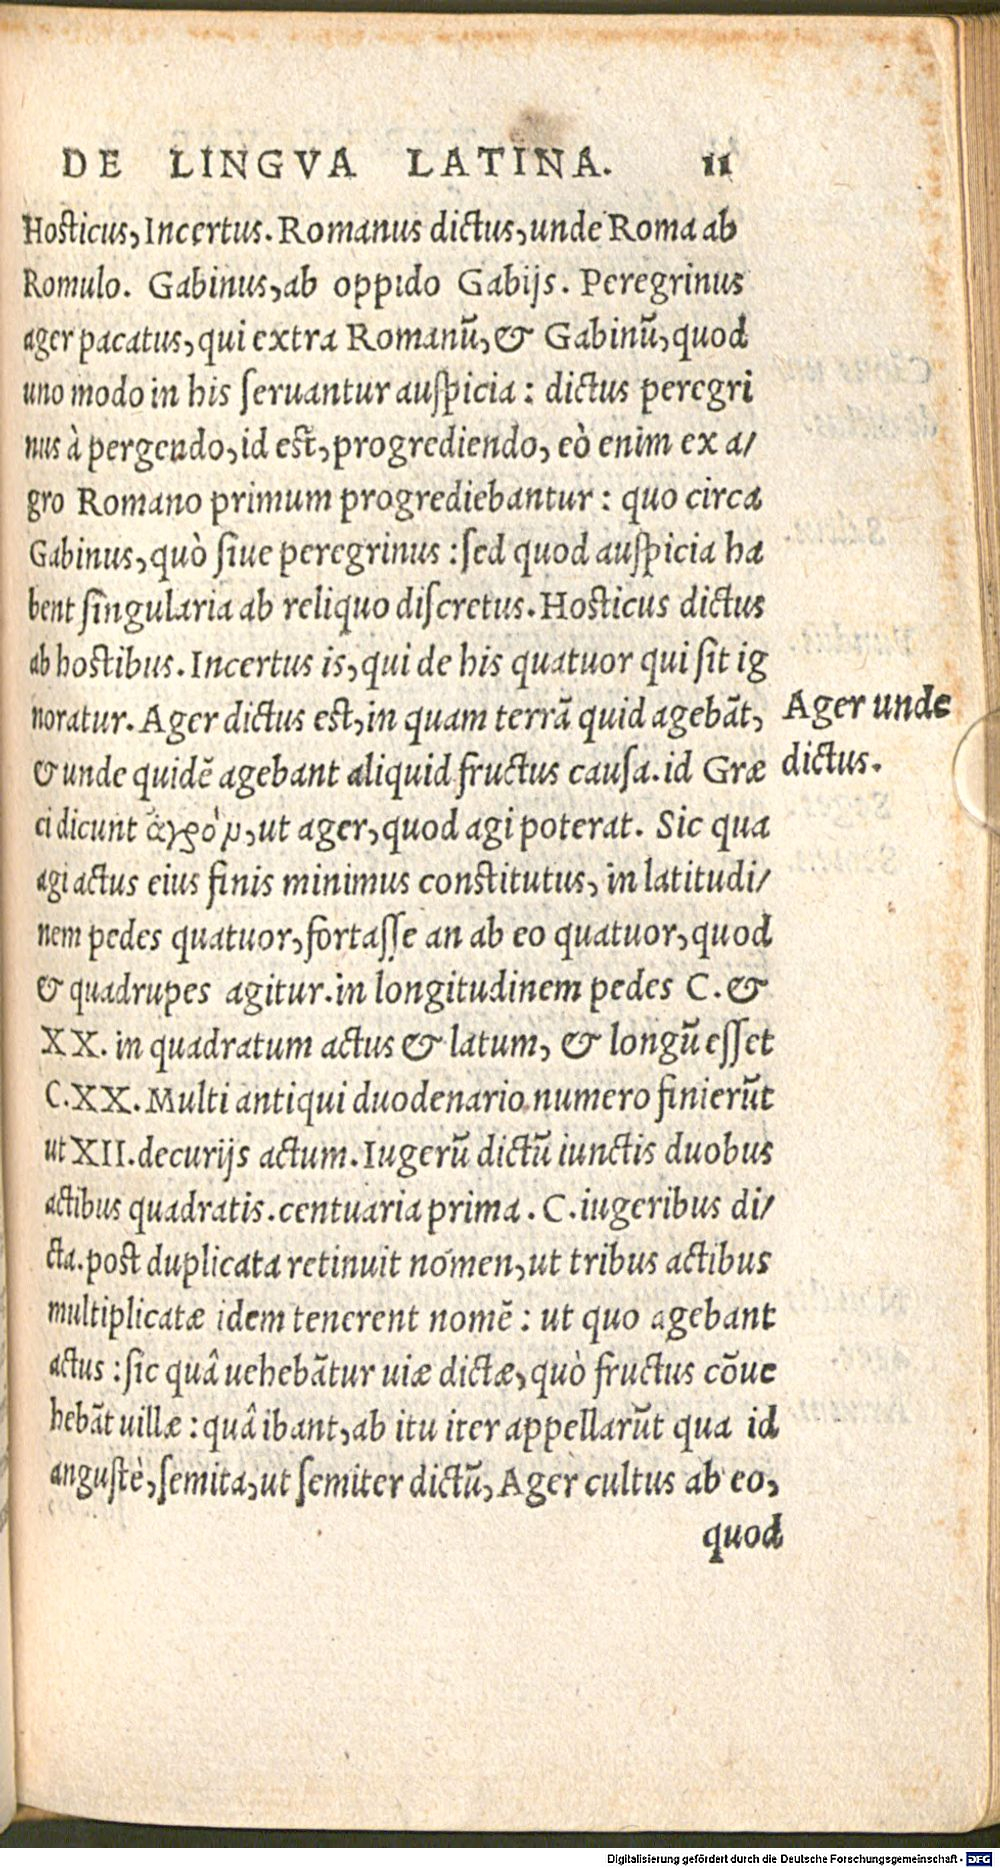 DE LINGVA LATINA. 11
Hosticus, Incertus. Romanus dictus, unde Roma ab
Romulo. Gabinus, ab oppido Gabijs. Peregrinus
ager pacatus, qui extra Romanū, & Gabinū, quod
uno modo in his ſeruantur auſpicia : dictus peregri
nus à pergendo, id est, progrediendo, eò enim ex a/
gro Romano primum progrediebantur : quo circa
Gabinus, quò ſiue peregrinus : ſed quod auſpicia ha
bent ſingularia ab reliquo diſcretus. Hosticus dictus
ab hostibus. Incertus is, qui de his quatuor qui ſit ig
noratur. Ager dictus est, in quam terrā quid agebāt,
& unde quidē agebant aliquid fructus cauſa. id Græ
ci dicunt ἀγρὸμ, ut ager, quod agi poterat. Sic qua
agi actus eius finis minimus constitutus, in latitudi/
nem pedes quatuor, fortaſſe an ab eo quatuor, quod
& quadrupes agitur. in longitudinem pedes C. &
XX. in quadratum actus & latum, & longū eſſet
C.XX. Multi antiqui duodenario numero finierūt
ut XII. decurijs actum. Iugerū dictū iunctis duobus
actibus quadratis. centuaria prima. C. iugeribus di/
cta. post duplicata retinuit nomen, ut tribus actibus
multiplicatæ idem tenerent nomē : ut quo agebant
actus : ſic quâ uehebātur uiæ dictæ, quò fructus cōue
hebāt uillæ : quâ ibant, ab itu iter appellarūt qua id
anguſtè, ſemita, ut ſemiter dictū, Ager cultus ab eo,
quod
Ager unde
dictus.
Digitalisierung gefördert durch die Deutsche Forschungsgemeinschaft - DFG